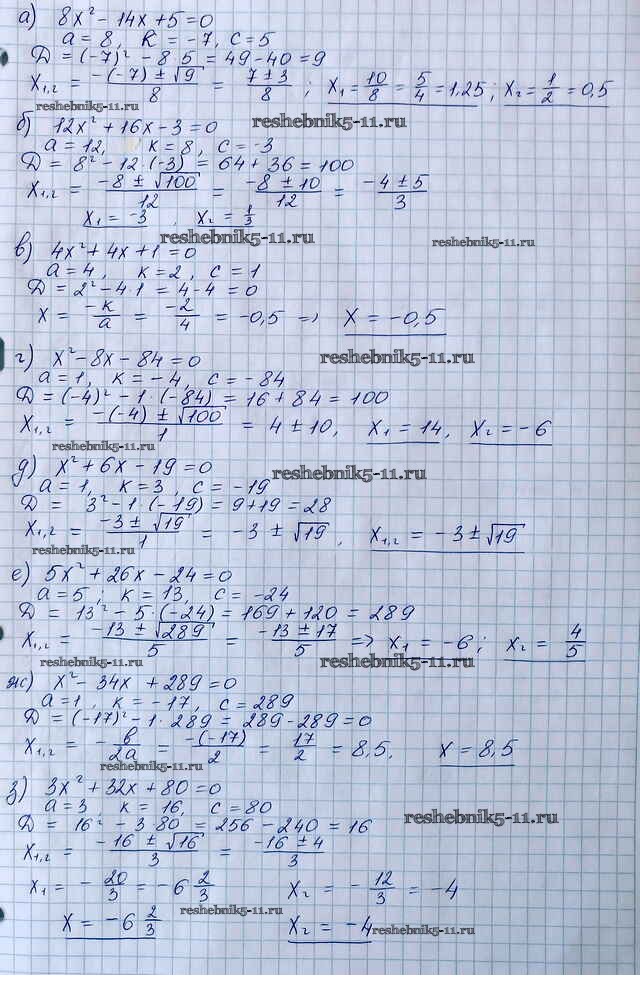 а) 8x² - 14x + 5 = 0
a = 8, k = -7, c = 5
D = (-7)² - 8·5 = 49 - 40 = 9
x₁,₂ = (-(-7) ± √9)/8 = (7 ± 3)/8 ; x₁ = 10/8 = 5/4 = 1,25 ; x₂ = 1/2 = 0,5
reshebnik5-11.ru reshebnik5-11.ru
б) 12x² + 16x - 3 = 0
a = 12, k = 8, c = -3
D = 8² - 12·(-3) = 64 + 36 = 100
x₁,₂ = (-8 ± √100)/12 = (-8 ± 10)/12 = (-4 ± 5)/3
x₁ = -3, x₂ = 1/3
reshebnik5-11.ru reshebnik5-11.ru
в) 4x² + 4x + 1 = 0
a = 4, k = 2, c = 1
D = 2² - 4·1 = 4 - 4 = 0
x = -k/a = -2/4 = -0,5 => x = -0,5
г) x² - 8x - 84 = 0 reshebnik5-11.ru
a = 1, k = -4, c = -84
D = (-4)² - 1·(-84) = 16 + 84 = 100
x₁,₂ = (-(-4) ± √100)/1 = 4 ± 10, x₁ = 14, x₂ = -6
reshebnik5-11.ru
д) x² + 6x - 19 = 0 reshebnik5-11.ru
a = 1, k = 3, c = -19
D = 3² - 1·(-19) = 9 + 19 = 28
x₁,₂ = (-3 ± √19)/1 = -3 ± √19, x₁,₂ = -3 ± √19
reshebnik5-11.ru
е) 5x² + 26x - 24 = 0
a = 5; k = 13, c = -24
D = 13² - 5·(-24) = 169 + 120 = 289
x₁,₂ = (-13 ± √289)/5 = (-13 ± 17)/5 => x₁ = -6; x₂ = 4/5
reshebnik5-11.ru reshebnik5-11.ru
ж) x² - 34x + 289 = 0
a = 1, k = -17, c = 289
D = (-17)² - 1·289 = 289 - 289 = 0
x₁,₂ = -в/2a = -(-17)/2 = 17/2 = 8,5, x = 8,5
reshebnik5-11.ru
з) 3x² + 32x + 80 = 0
a = 3, k = 16, c = 80
D = 16² - 3·80 = 256 - 240 = 16 reshebnik5-11.ru
x₁,₂ = (-16 ± √16)/3 = (-16 ± 4)/3
x₁ = -20/3 = -6 2/3 x₂ = -12/3 = -4
reshebnik5-11.ru
x = -6 2/3 x₂ = -4 reshebnik5-11.ru